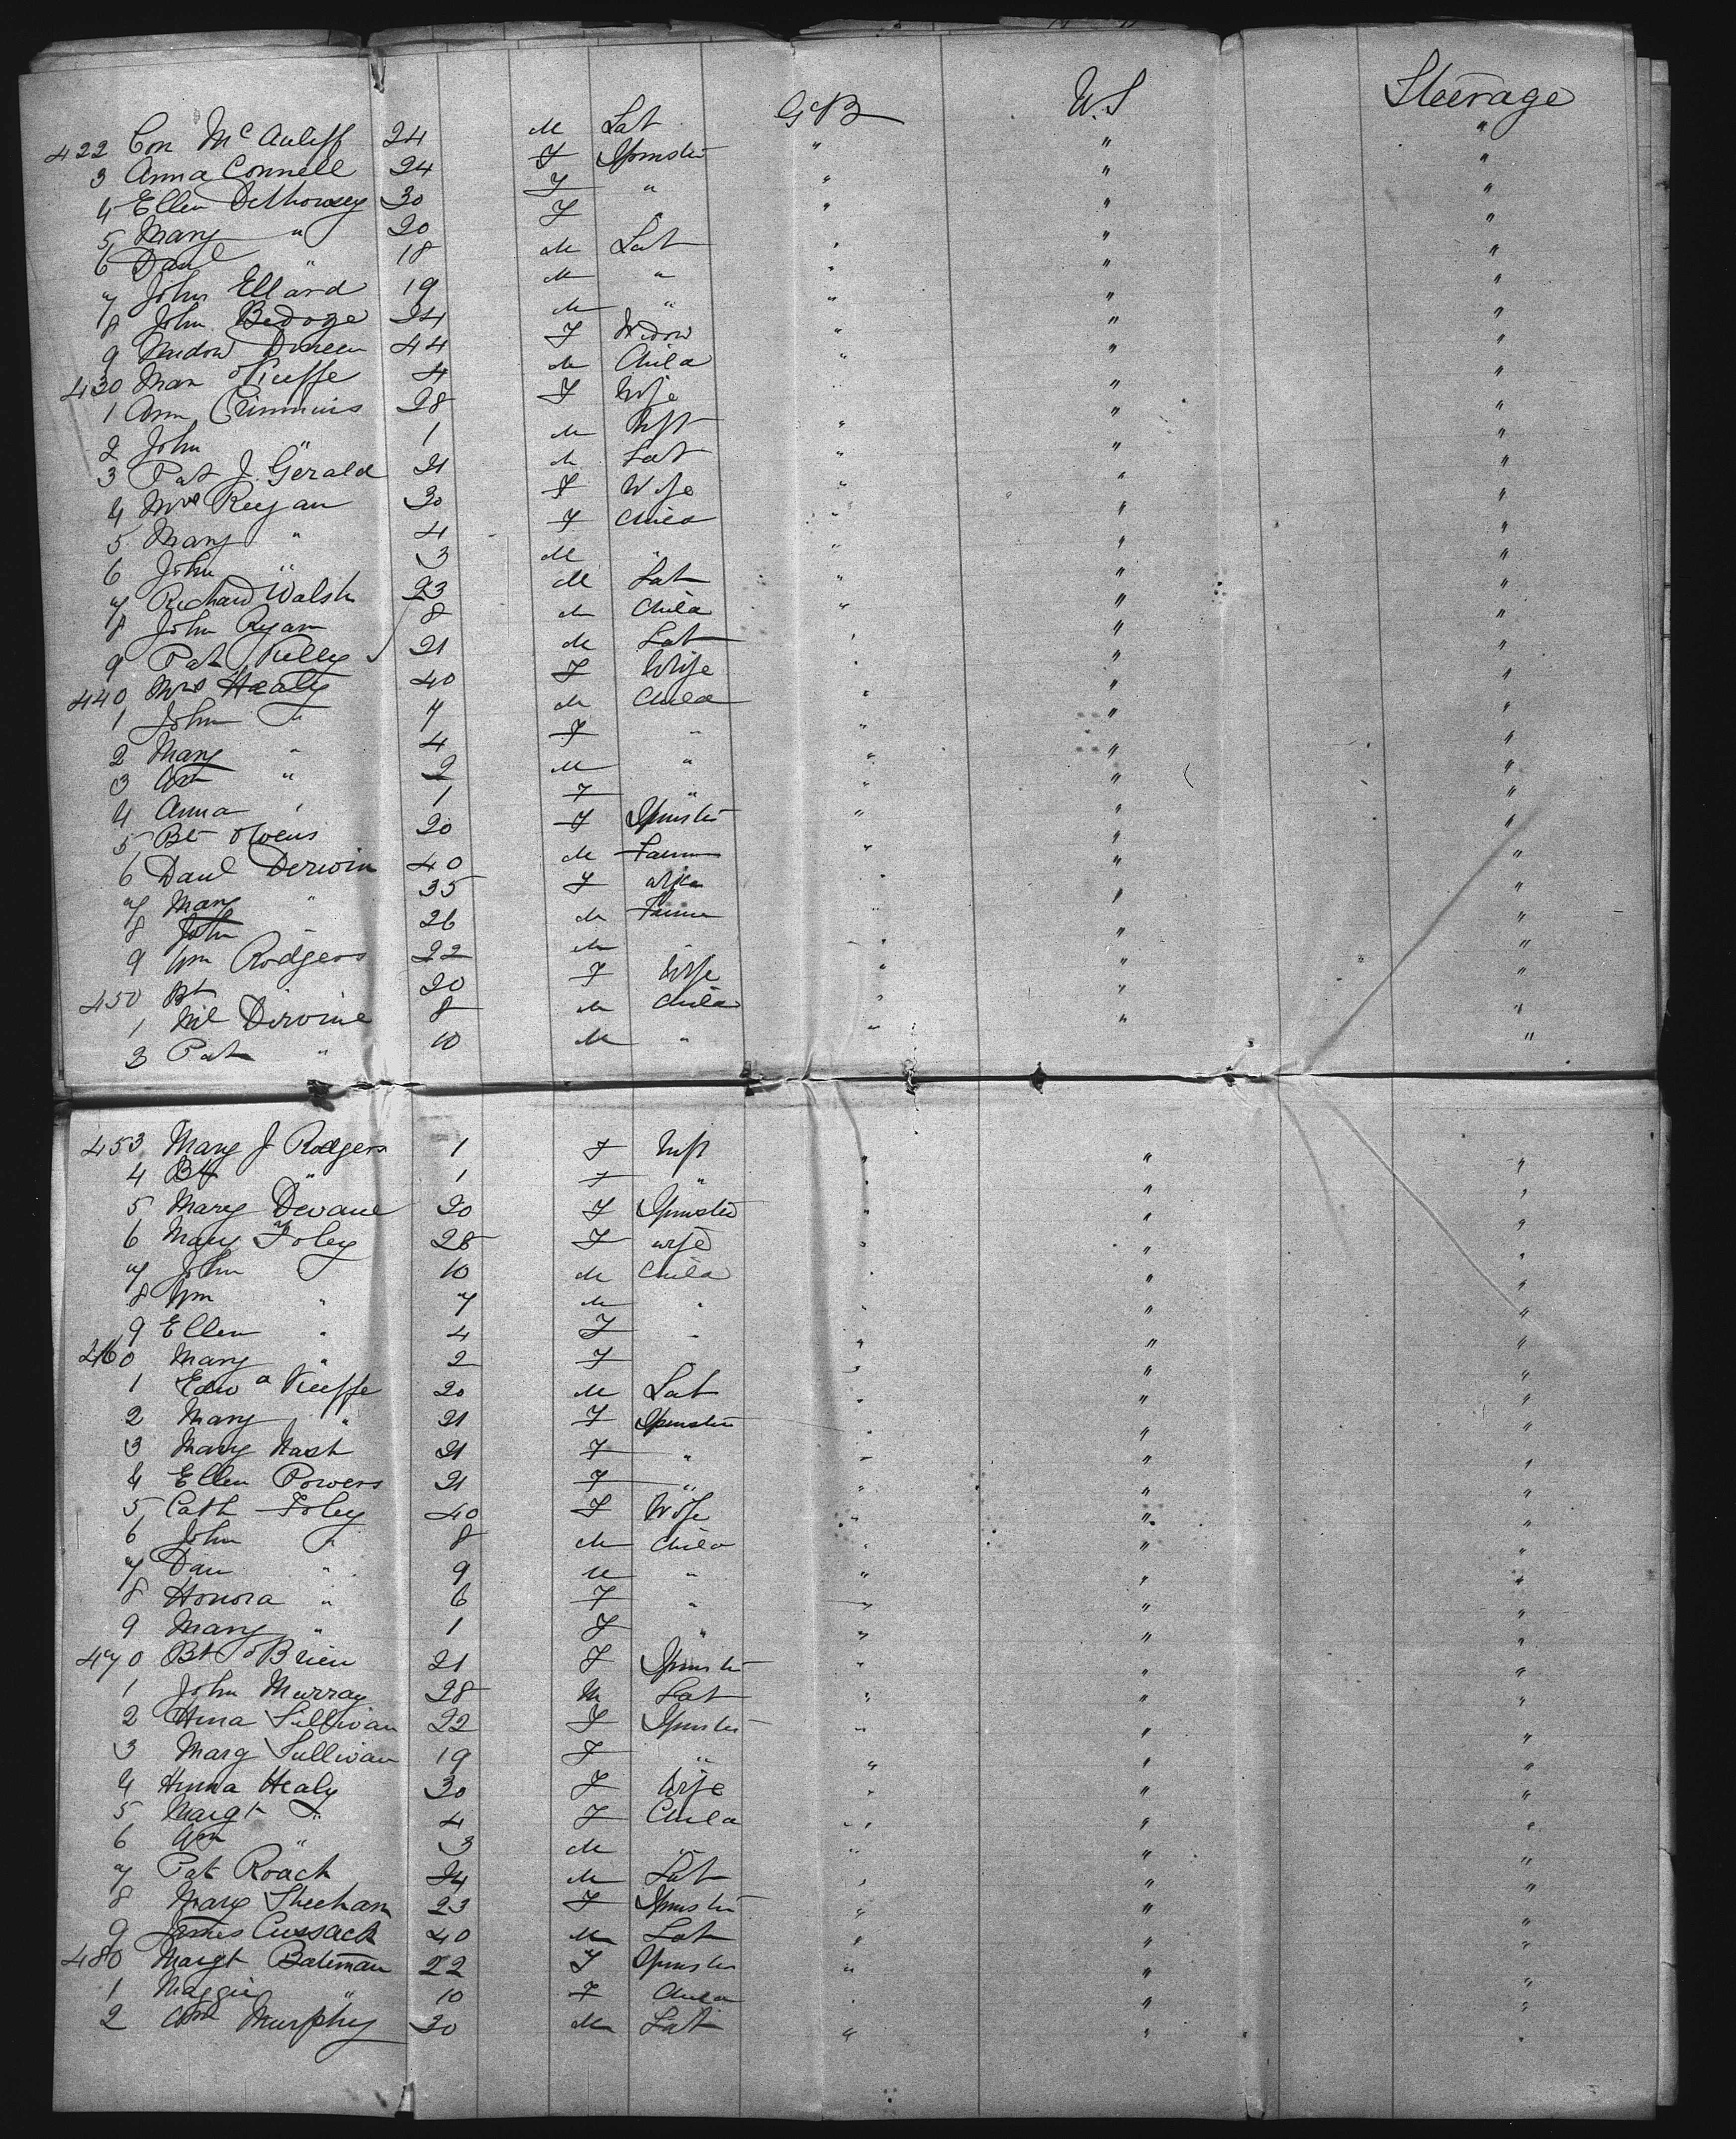 GB U.S Steerage
422 Con McAuliff 24 M Lab " " "
3 Anna Connell 24 F Spinster " " "
4 Ellen 30 F " " " "
5 Mary " 20 F " "
6 Danl " 18 M Lab " " "
7 John Ellard 19 M " " " "
8 John 24 M " " " "
9 Dineen 44 F Widow " " "
430 Mar oKeeffe 4 M Child " " "
1 Ann Crimmins 28 F Wife " " "
2 John " 1 M Inft " " "
3 Pat J. Gerald 21 M Lab " " "
4 Mrs Regan 30 F Wife " " "
5 Mary " 4 F Child " " "
6 John " 3 M " " " "
7 Richard Walsh 23 M Lab " " "
8 John Ryan 8 M Child " " "
9 Pat Kelly 21 M Lab " " "
440 Mrs Healy 40 F Wife " " "
1 John " 7 M Child " " "
2 Mary " 4 F " " " "
3 " 2 M " " " "
4 Anna " 1 F " " " "
5 Bt Owens 20 F Spinster " " "
6 Danl Derwin 40 M Farmer " " "
7 Mary " 35 F wife " " "
8 John " 26 M Farmer " " "
9 Wm Rodgers 22 M " " " "
450 Bt 20 F Wife " " "
1 Dirvine 8 M Child " " "
2 Pat " 10 M " " " "
453 Mary J Rodgers 1 F Inft " " "
4 Bt " 1 F " " " "
5 Mary Devane 20 F Spinster " " "
6 Mary Foley 28 F wife " " "
7 John " 10 M Child " " "
8 Wm " 7 M " " " "
9 Ellen " 4 F " " " "
460 Mary " 2 F " " "
1 Edw oKeeffe 20 M Lab " " "
2 Mary " 21 F Spinster " " "
3 Mary Nash 21 F " " " "
4 Ellen Powers 21 F " " " "
5 Cath Foley 40 F Wife " " "
6 John " 8 M Child " " "
7 Dan " 9 M " " " "
8 Honora " 6 F " " " "
9 Mary " 1 F " " " "
470 Bt oBrien 21 F Spinster " " "
1 John Murray 28 M Lab " " "
2 Sullivan 22 F Spinster " " "
3 Marg Sullivan 19 F " " " "
4 Healy 30 F Wife " " "
5 Margt " 4 F Child " " "
6 " 3 M " " " "
7 Pat Roach 24 M Lab " " "
8 Mary Sheehan 23 F Spinster " " "
9 James Cussack 40 M Lab " " "
480 Margt Bateman 22 F Spinster " " "
1 Maggie " 10 F Child " " "
2 Murphy 30 M Lab " " "